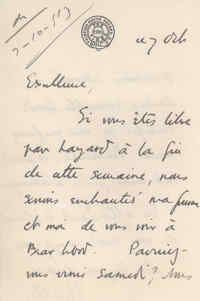 2-10-53
ce 7 Oct.
Excellence,
Si vous êtes libre
par hasard à la fin
de cette semaine, nous
serions enchantés ma femme
et moi de vous voir à
Pourriez-
vous venir samedi? Nous